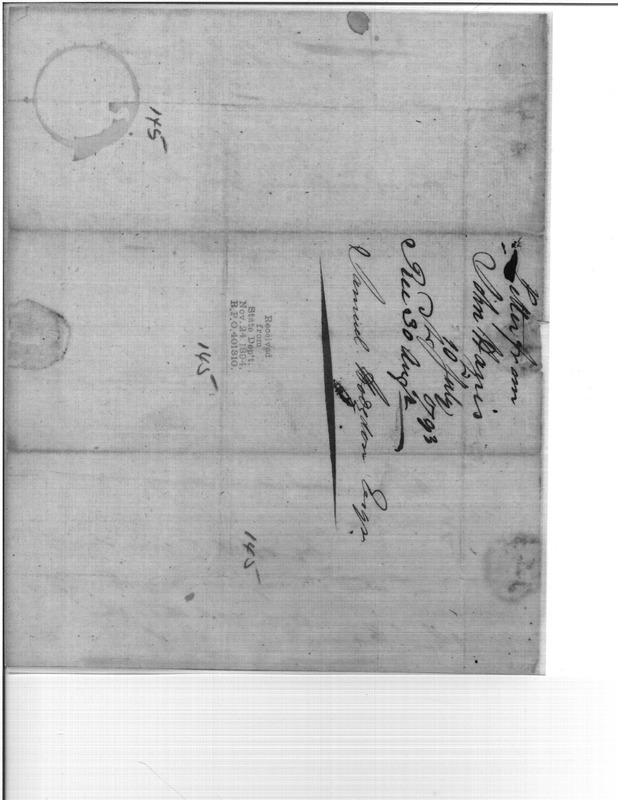 Letter from
John Harris
10 July 1793
Rec 30 Augt
Samuel Hodgdon Esqr.
Received
from
State Dep't.
Nov. 24 1904.
R.P.O. 401810.
145
145
145